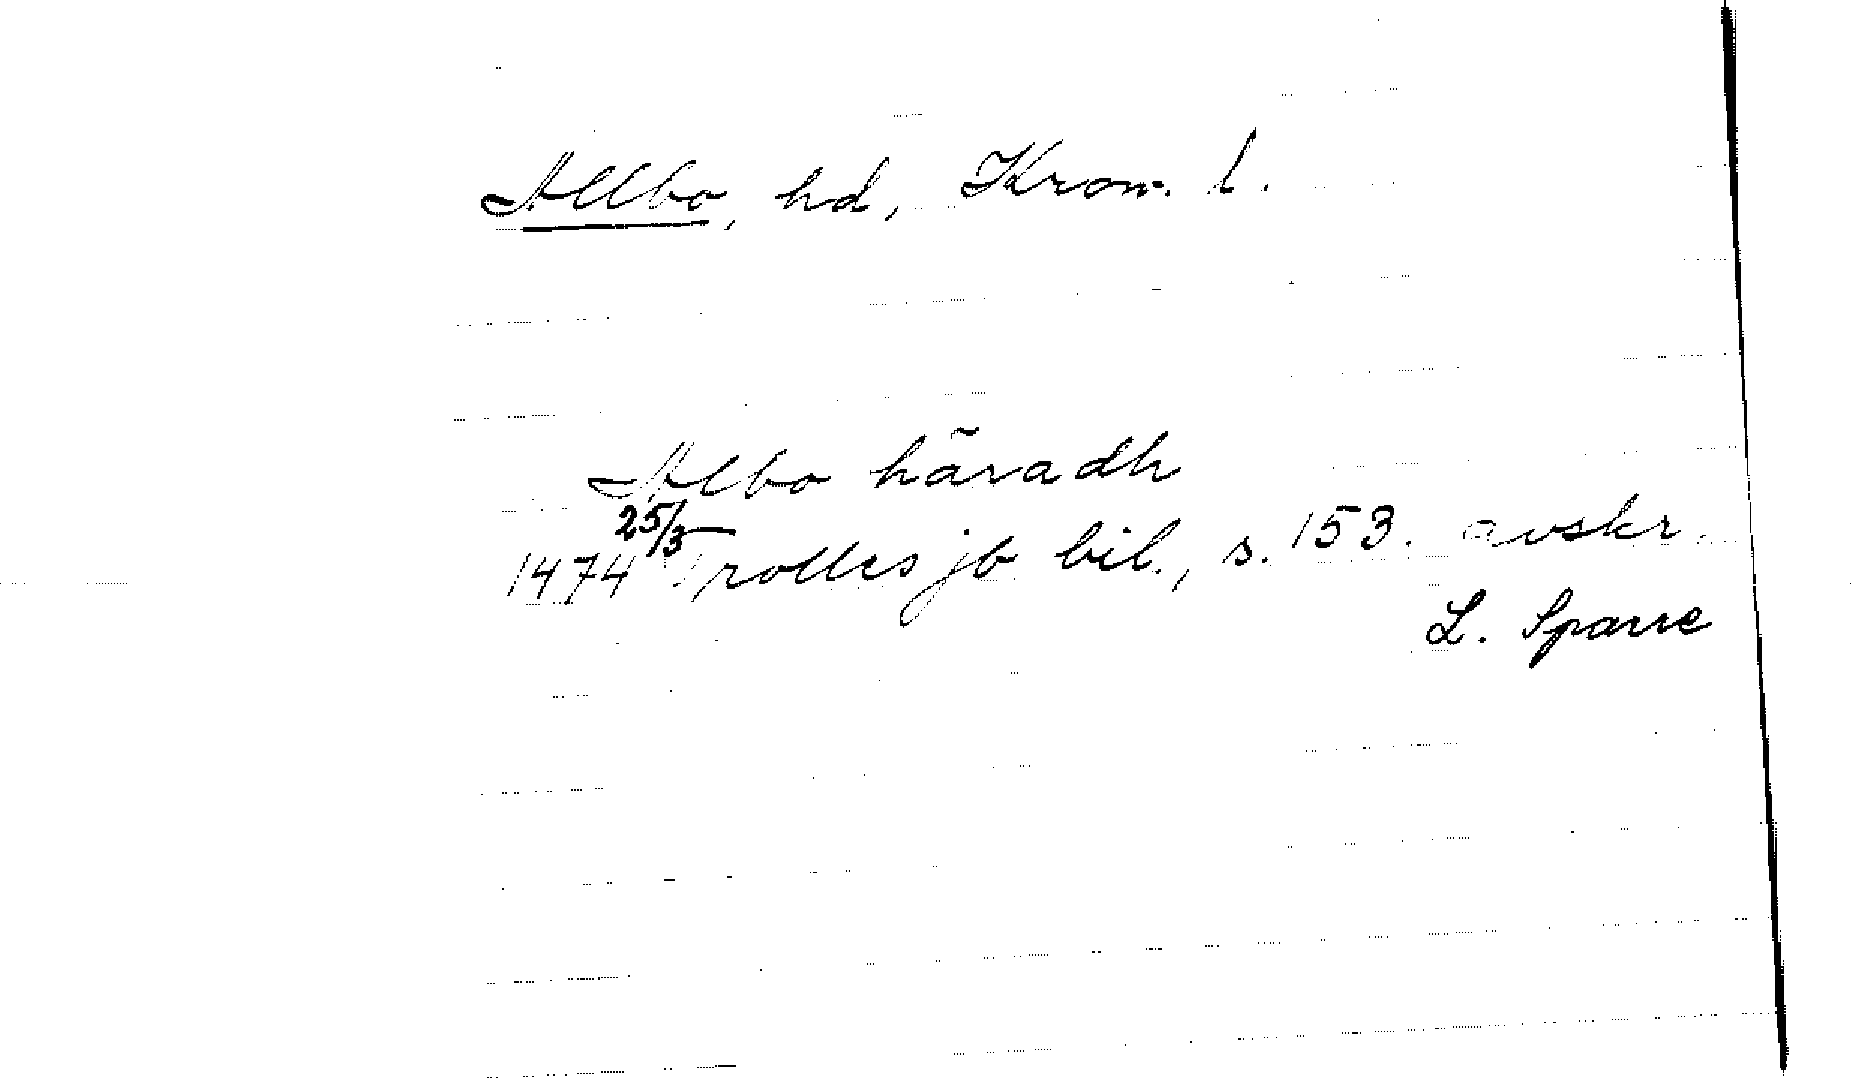 Allbo, hd, Kron. l.
Albo häradh
1474 25/3 Trolles jb bil., s. 153. avskr.
L. Sparre